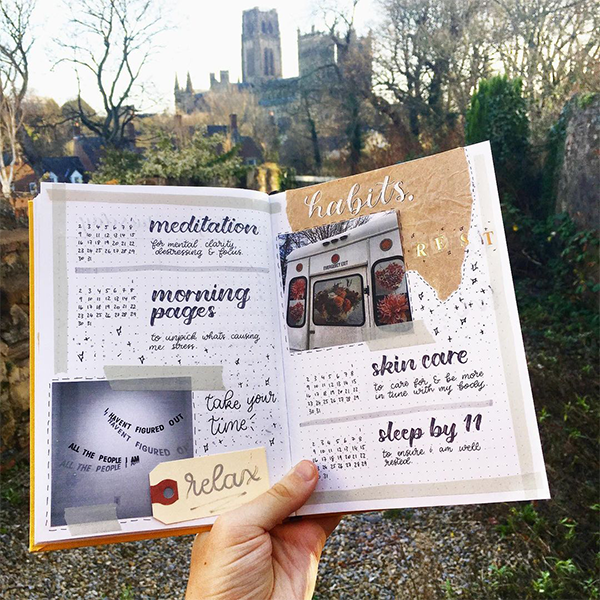 meditation
for mental clarity,
destressing & focus.
morning
pages
to unpick whats causing
me stress.
I HAVEN'T FIGURED OUT
HAVEN'T FIGURED OUT
ALL THE PEOPLE I AM
ALL THE PEOPLE I
take your
time!
relax
habits.
REST
EMERGENCY EXIT
skin care
to care for & be more
in tune with my body.
sleep by 11
to insure i am well
rested.